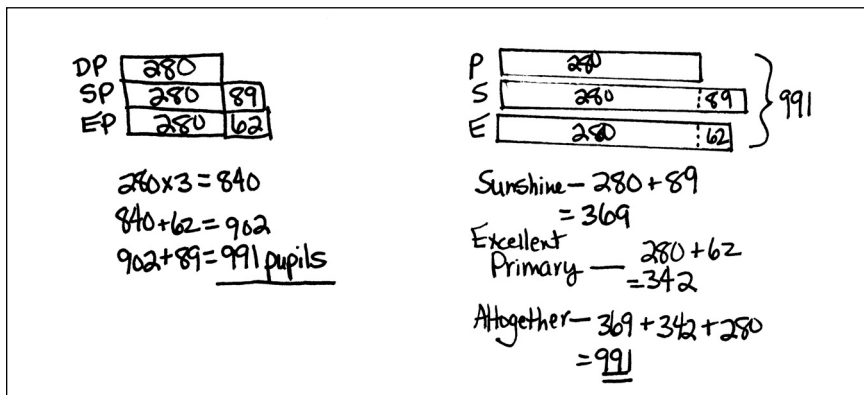 DP 280
SP 280 89
EP 280 62
280×3=840
840+62=902
902+89=991 pupils
P 280
S 280 89
E 280 62
991
Sunshine — 280+89
=369
Excellent
Primary — 280+62
=342
Altogether — 369+342+280
=991